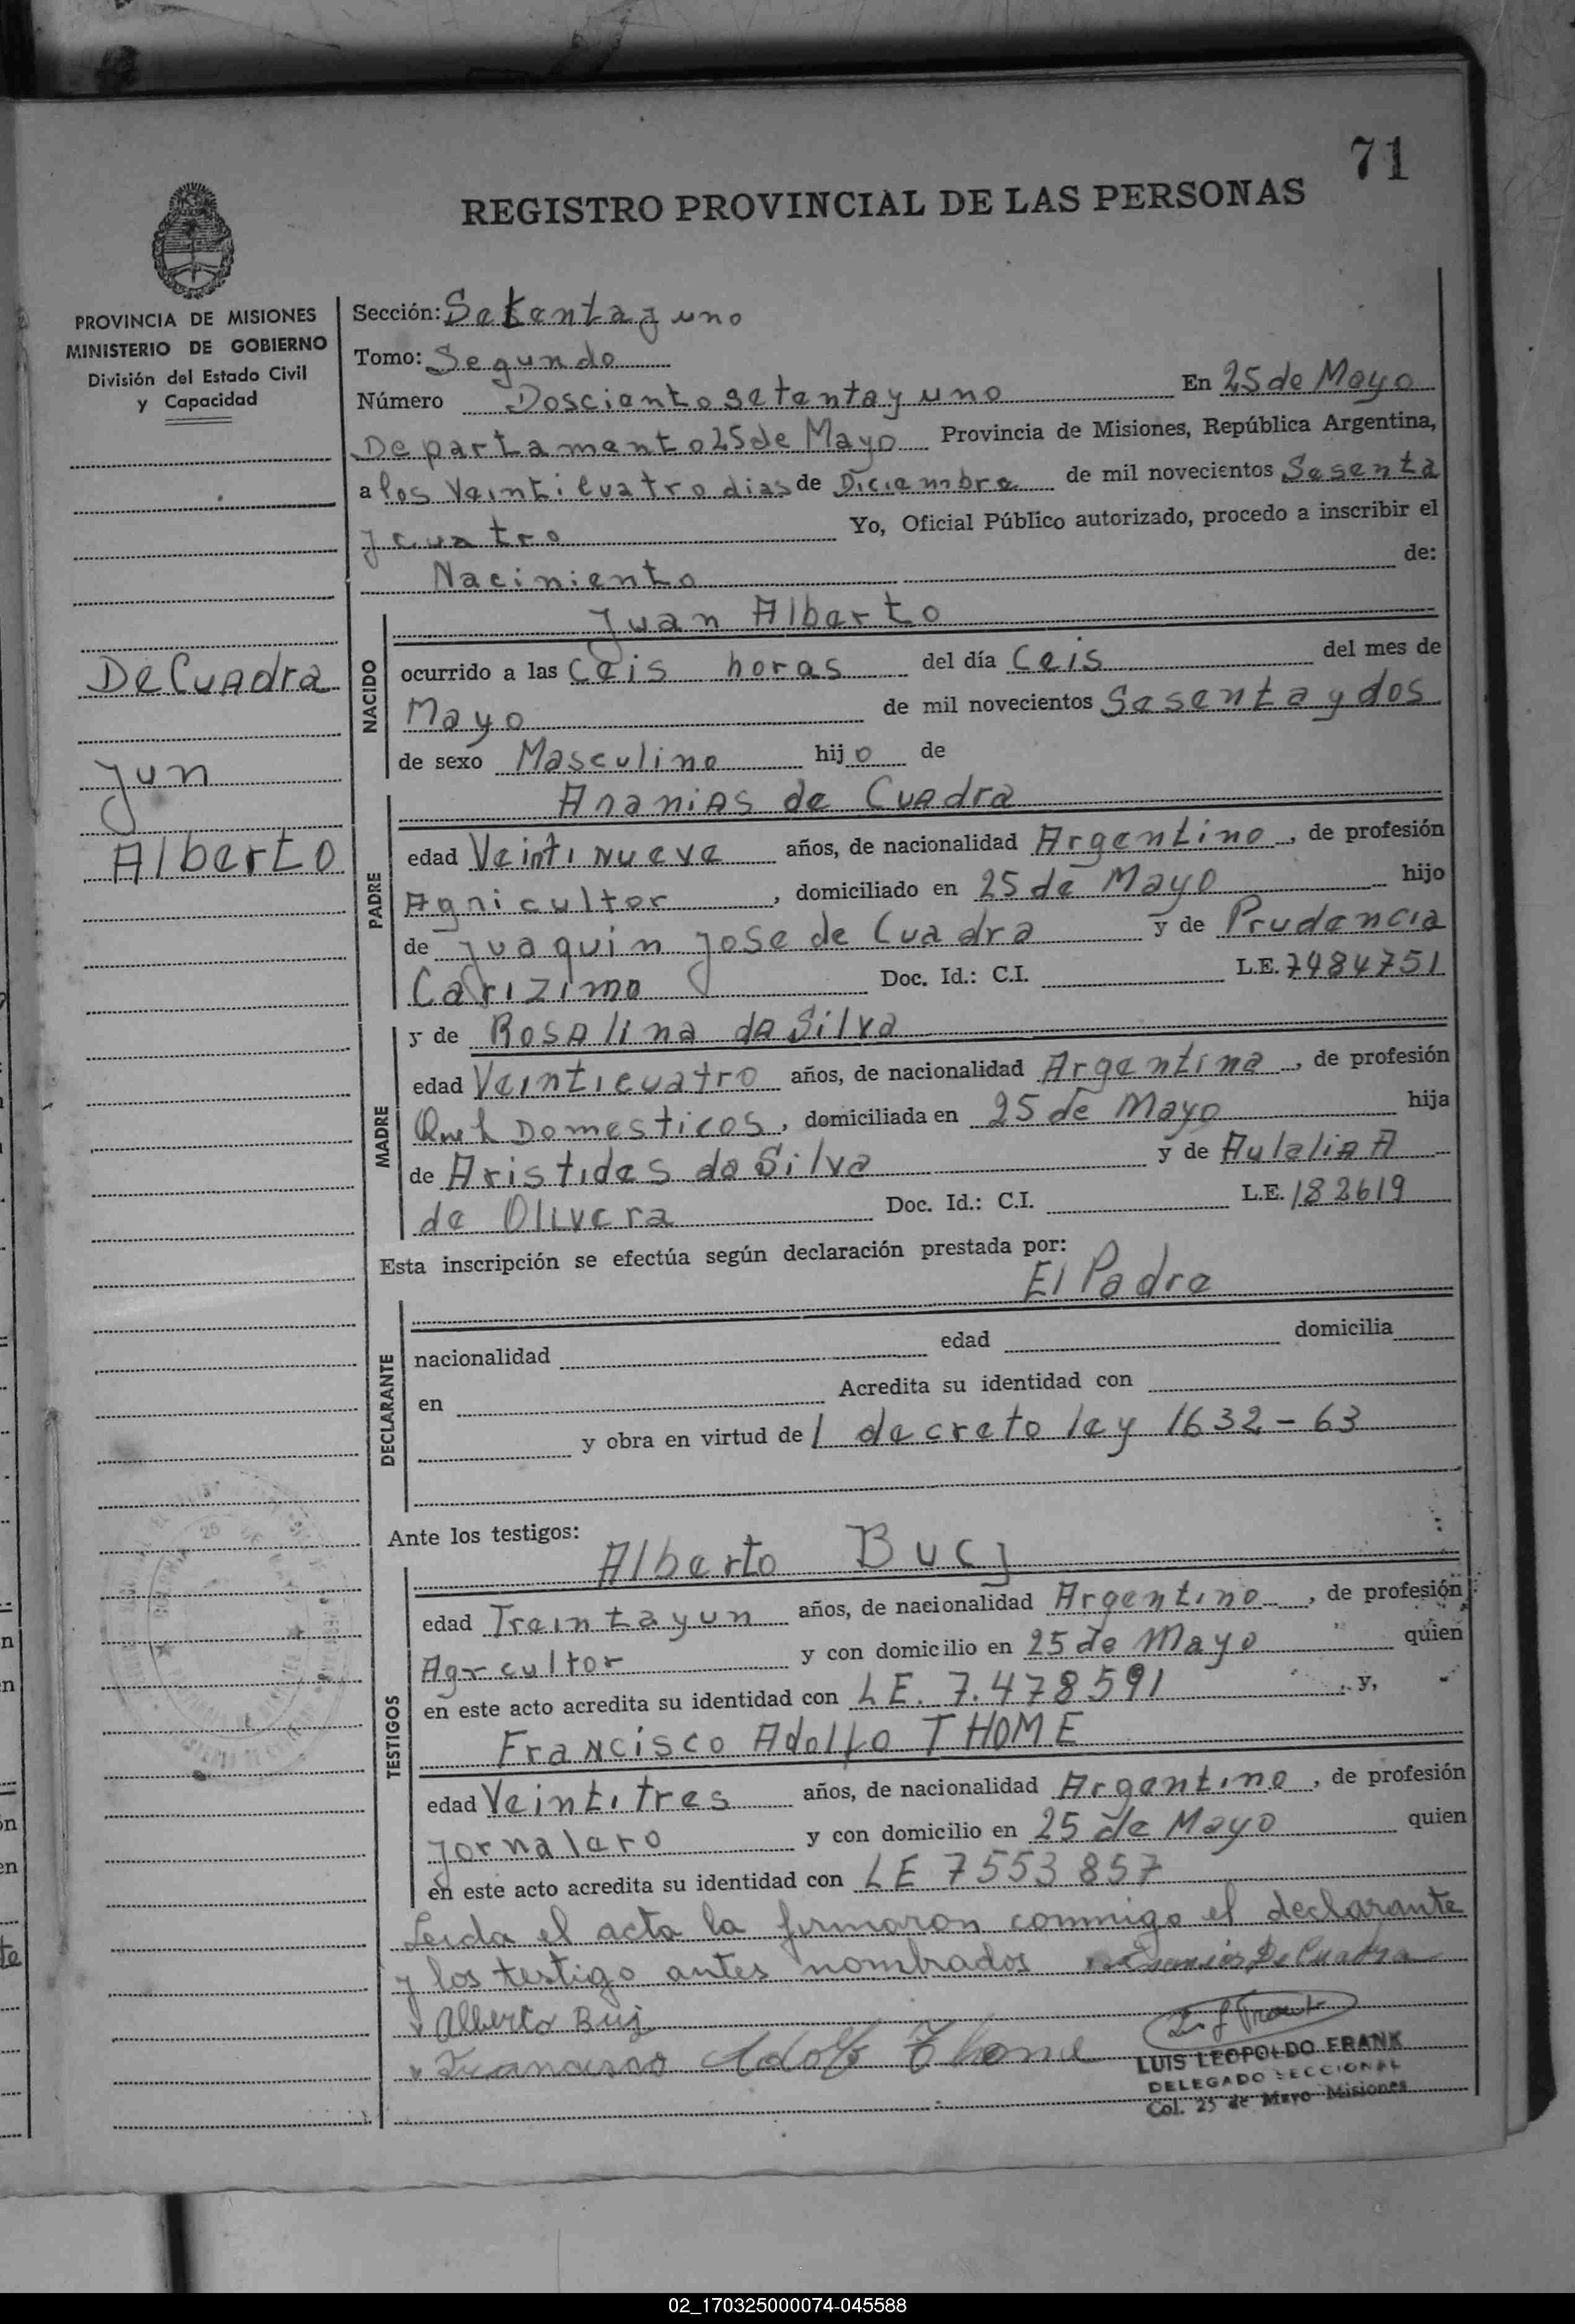 71
REGISTRO PROVINCIAL DE LAS PERSONAS
PROVINCIA DE MISIONES
MINISTERIO DE GOBIERNO
División del Estado Civil
y Capacidad
De Cuadra
Jun
Alberto
Sección: Setenta y uno
Tomo: Segundo
Número Dosciento setenta y uno En 25 de Mayo
Departamento 25 de Mayo Provincia de Misiones, República Argentina,
a los Veinticuatro dias de Diciembre de mil novecientos Sesenta
y cuatro Yo, Oficial Público autorizado, procedo a inscribir el
Naciniento de:
NACIDO
Juan Alberto
ocurrido a las Ceis horas del día Ceis del mes de
Mayo de mil novecientos Sesenta y dos
de sexo Masculino hijo de
PADRE
Ananias de Cuadra
edad Veinti Nueve años, de nacionalidad Argentino, de profesión
Agricultor, domiciliado en 25 de Mayo hijo
de Juaquin Jose de Cuadra y de Prudencia
Carizimo Doc. Id.: C.I. L.E. 7484751
MADRE
y de Rosalina da Silva
edad Veinticuatro años, de nacionalidad Argentina, de profesión
Domesticos, domiciliada en 25 de Mayo hija
de Aristides da Silva y de Aulalia A
de Olivera Doc. Id.: C.I. L.E. 182619
Esta inscripción se efectúa según declaración prestada por:
El Padre
DECLARANTE
nacionalidad edad domicilia
en Acredita su identidad con
y obra en virtud del decreto ley 1632-63
Ante los testigos:
TESTIGOS
Alberto Bucj
edad Treinta y un años, de nacionalidad Argentino, de profesión
Agrcultor y con domicilio en 25 de Mayo quien
en este acto acredita su identidad con LE. 7.478591 y,
Francisco Adolfo THOME
edad Veintitres años, de nacionalidad Argentino, de profesión
Jornalero y con domicilio en 25 de Mayo quien
en este acto acredita su identidad con LE 7553857
Leida el acta la firmaron conmigo el declarante
y los testigo antes nombrados De Cuadra
Alberto
Francisco Adolfo Thome
LUIS LEOPOLDO FRANK
DELEGADO SECCIONAL
Col. 25 de Mayo-Misiones
02_170325000074-045588